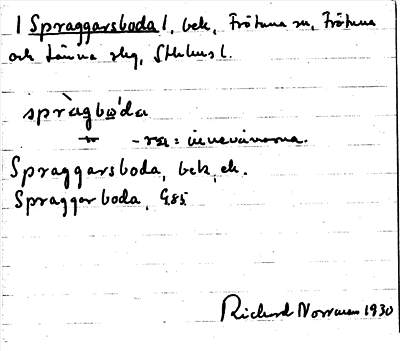 | Spraggarsboda |, bek, Frötuna sn, Frötuna
och Länna slg, Sthlms l.
spràgbo̲´da
- rsn = invånarna.
Spraggarsboda, bek, ek.
Spraggarboda, G85
Richard Norrman 1930